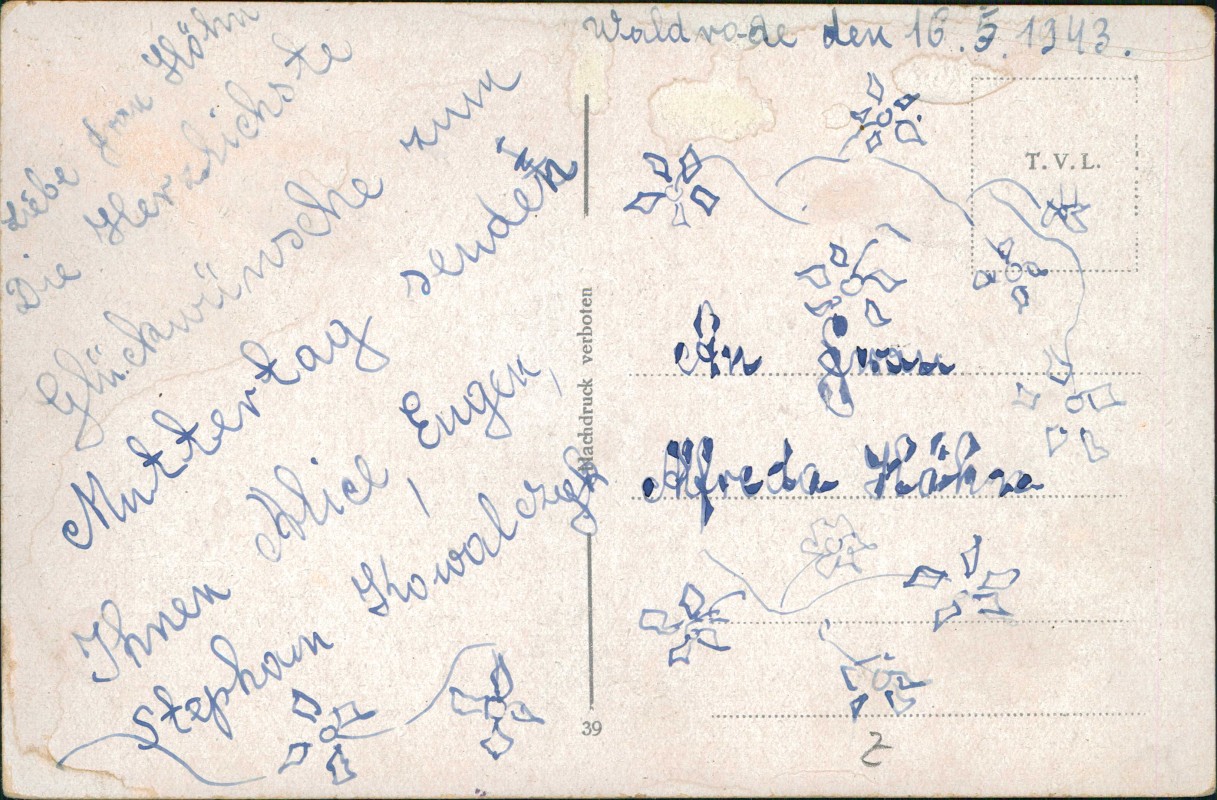 Waldrode den 16.5.1943.
Liebe Frau Höhn
Die Herzlichste
Glückwünsche zum
Muttertag senden
Ihnen Alice, Eugen,
Stephan Kowalczyk
Nachdruck verboten
39
T.V.L.
An Frau
Alfreda
z